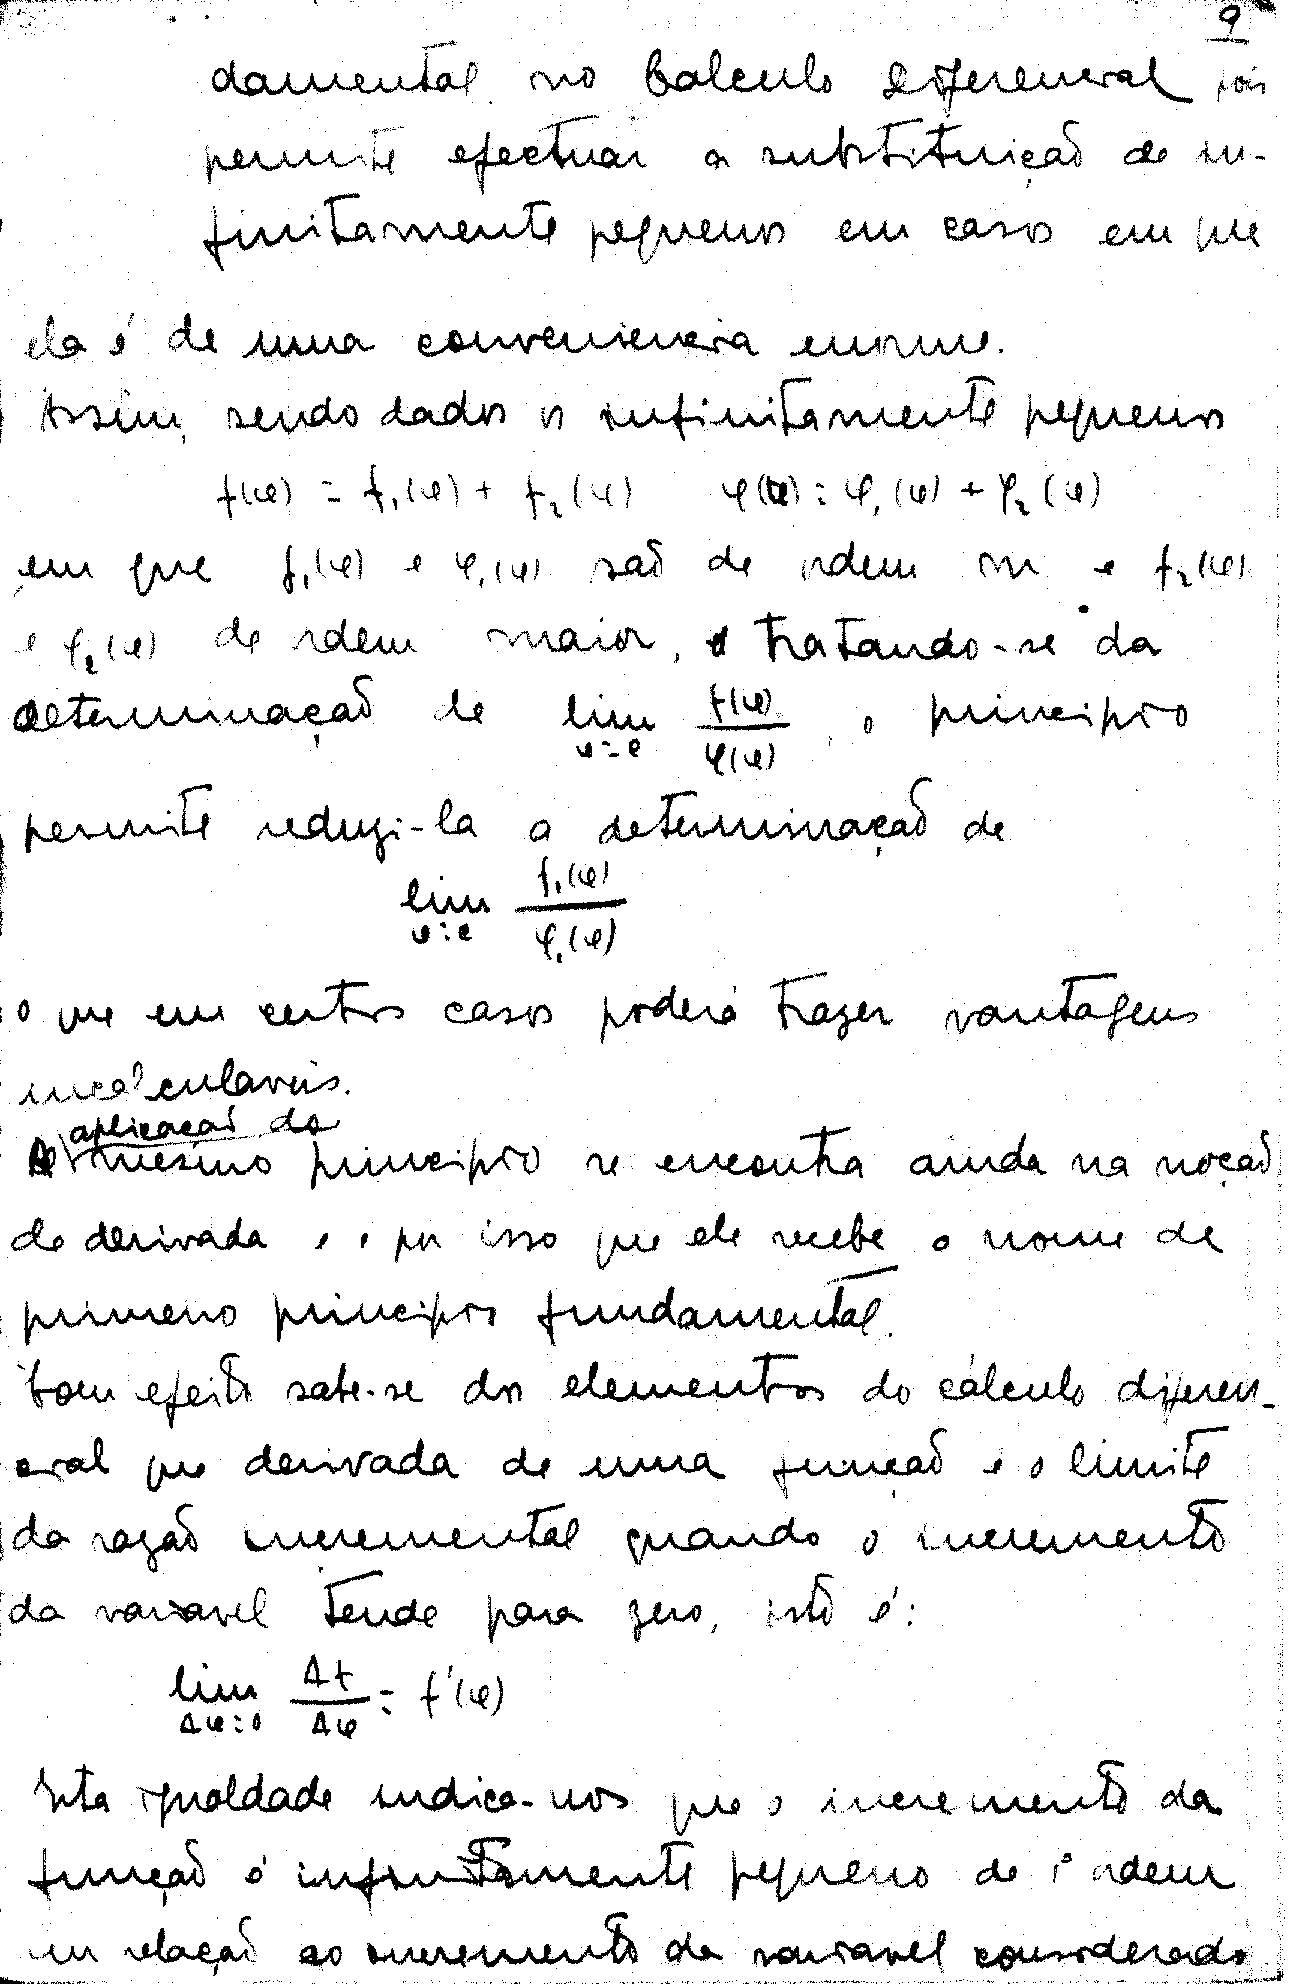 9
damental no Calculo Diferencial pois
permite efectuar a substituição de in-
finitamente pequenos em casos em que
ela é de uma conveniencia enorme.
Assim, sendo dados os infinitamente pequenos
f(φ) = f₁(φ) + f₂(φ) φ(φ) = φ₁(φ) + φ₂(φ)
em que f₁(φ) e φ₁(φ) são de ordem m e f₂(φ)
e φ₂(φ) de ordem maior, tratando-se da
determinação de lim f(φ)/φ(φ), o principio
permite reduzi-la a determinação de
lim f₁(φ)/φ₁(φ)
o que em certos casos poderá trazer vantagens
incalculaveis.
A aplicação do
mesmo principio se encontra ainda na noção
de derivada e é por isso que ele recebe o nome de
primeiro principio fundamental.
Com efeito sabe-se dos elementos do cálculo diferen-
cial que derivada de uma função é o limite
da razão incremental quando o incremento
da variavel tende para zero, isto é:
lim Δf/Δφ = f'(φ)
Δφ=0
Esta igualdade indica-nos que o incremento da
função é infinitamente pequeno de 1ª ordem
em relação ao incremento da variavel considerado